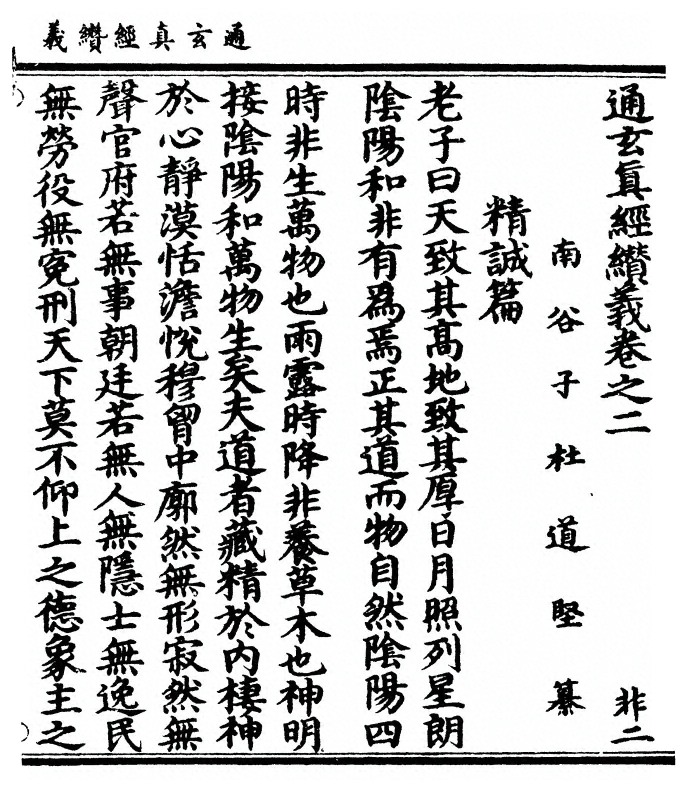 通玄真經纘義
通玄真經纘義卷之二 非二
南谷子杜道堅纂
精誠篇
老子曰天致其高地致其厚日月照列星朗
陰陽和非有為焉正其道而物自然陰陽四
時非生萬物也雨露時降非養草木也神明
接陰陽和萬物生矣夫道者藏精於內棲神
於心靜漠恬澹悅穆胷中廓然無形寂然無
聲官府若無事朝廷若無人無隱士無逸民
無勞役無冤刑天下莫不仰上之德象主之